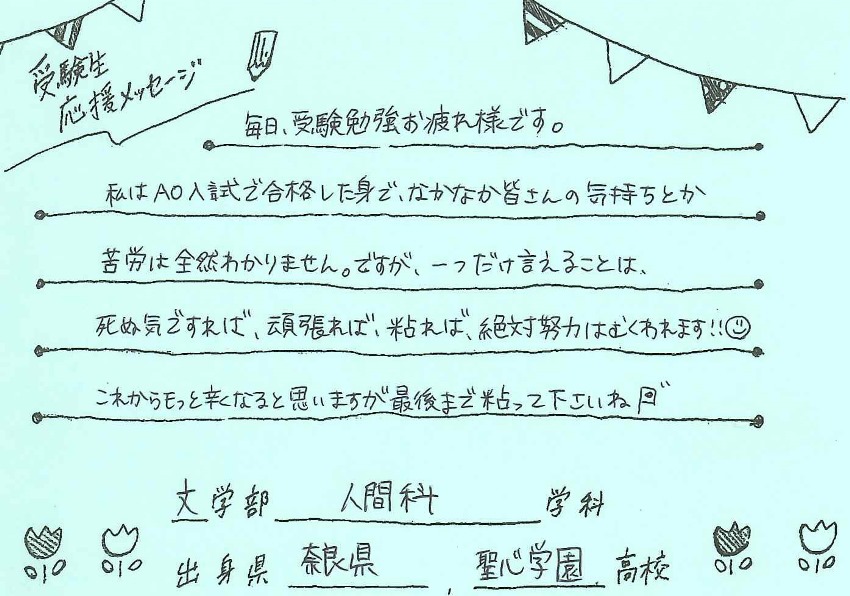 受験生
応援メッセージ
毎日、受験勉強お疲れ様です。
私はAO入試で合格した身で、なかなか皆さんの気持ちとか
苦労は全然わかりません。ですが、一つだけ言えることは、
死ぬ気ですれば、頑張れば、粘れば、絶対努力はむくわれます!!☺
これからもっと辛くなると思いますが最後まで粘って下さいね
文学部 人間科 学科
出身県 奈良県 , 聖心学園 高校